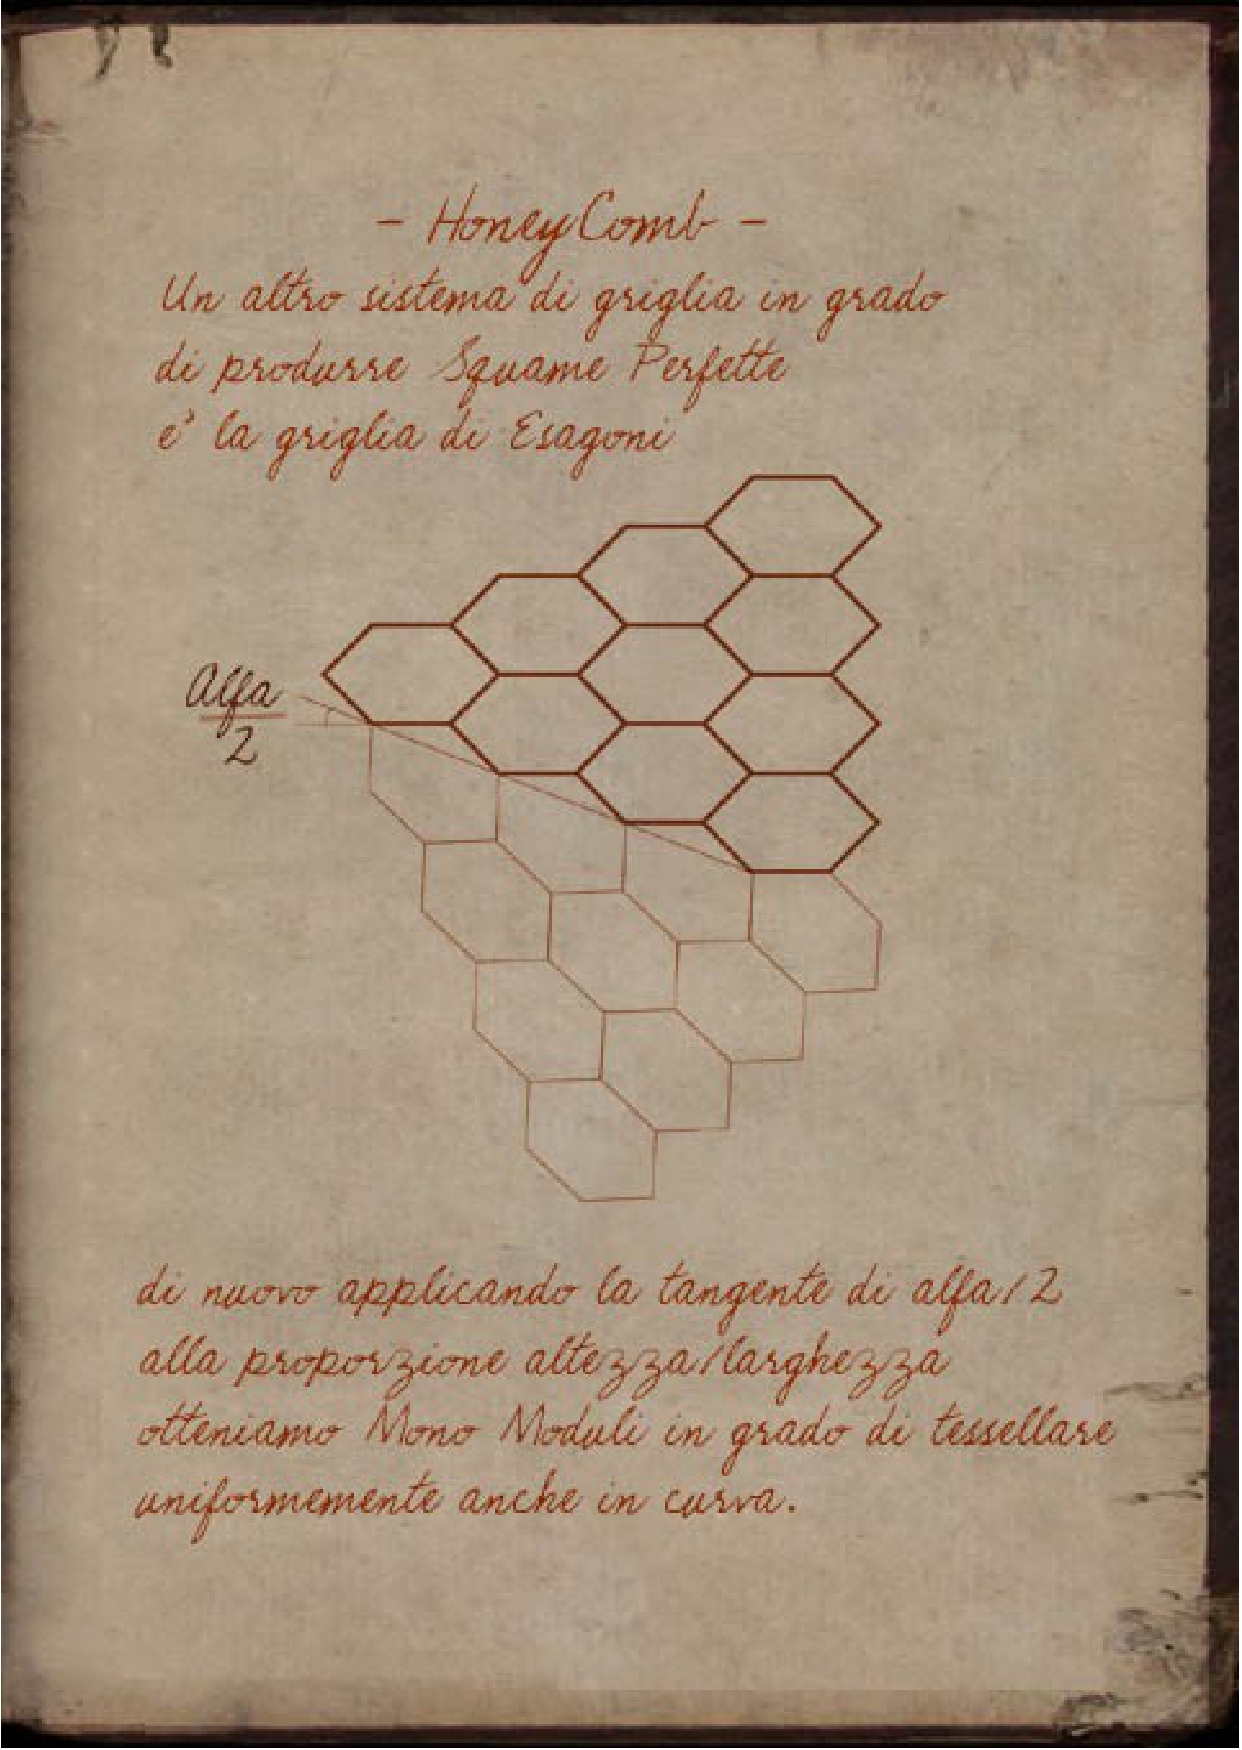 - HoneyComb -
Un altro sistema di griglia in grado
di produrre Squame Perfette
e' la griglia di Esagoni
Alfa
2
di nuovo applicando la tangente di alfa/2
alla proporzione altezza/larghezza
otteniamo Mono Moduli in grado di tessellare
uniformemente anche in curva.